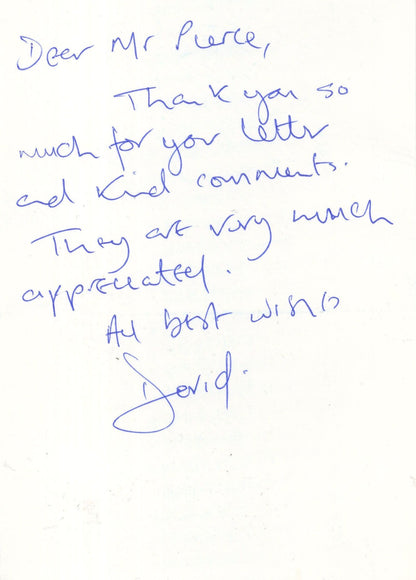 Dear Mr Pierce,
Thank you so
much for your letter
and kind comments.
They are very much
appreciated.
All best wishes
David.